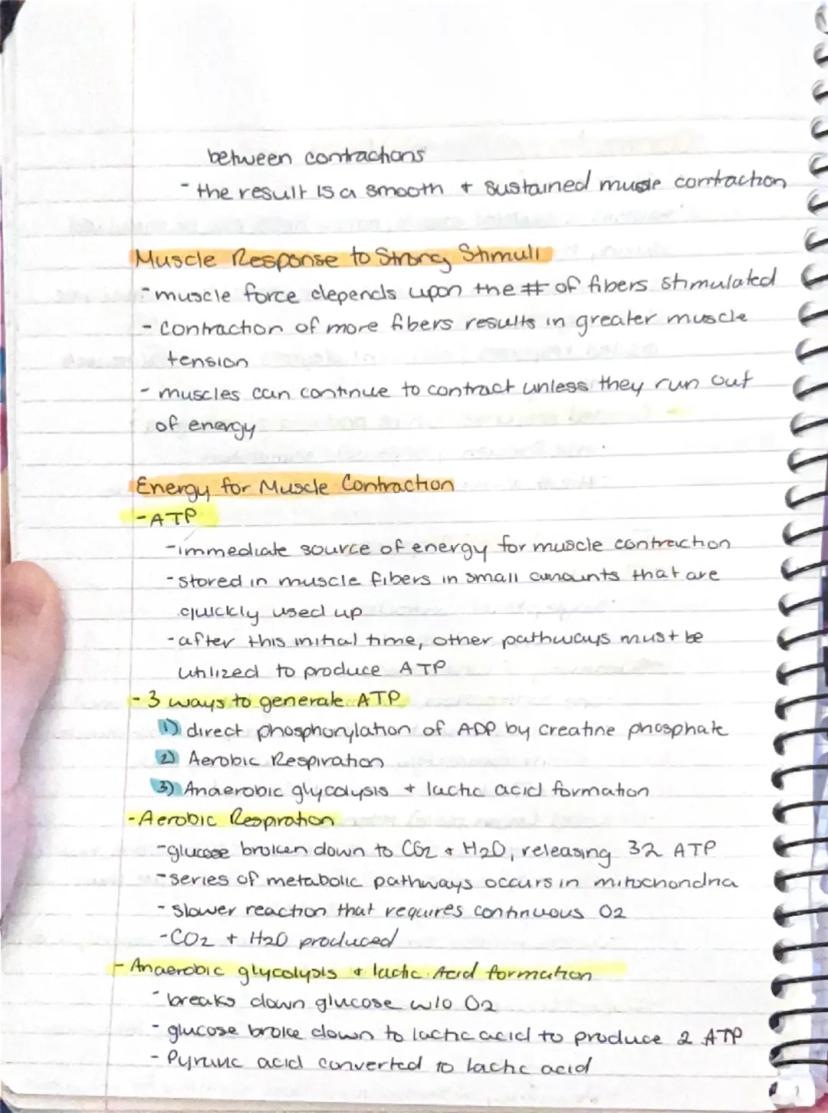 between contractions
- the result is a smooth + sustained muscle contraction
Muscle Response to Strong Stimuli
- muscle force depends upon the # of fibers stimulated
- contraction of more fibers results in greater muscle
tension
- muscles can continue to contract unless they run out
of energy
Energy for Muscle Contraction
- ATP
- immediate source of energy for muscle contraction
- stored in muscle fibers in small amounts that are
quickly used up
- after this initial time, other pathways must be
utilized to produce ATP
- 3 ways to generate ATP
1) direct phosphorylation of ADP by creatine phosphate
2) Aerobic Respiration
3) Anaerobic glycolysis + lactic acid formation
- Aerobic Respiration
- glucose broken down to CO2 + H2O, releasing 32 ATP
- series of metabolic pathways occurs in mitochondria
- slower reaction that requires continuous O2
- CO2 + H2O produced
- Anaerobic glycolysis + lactic Acid formation
- breaks down glucose w/o O2
- glucose broke down to lactic acid to produce 2 ATP
- Pyruvic acid converted to lactic acid